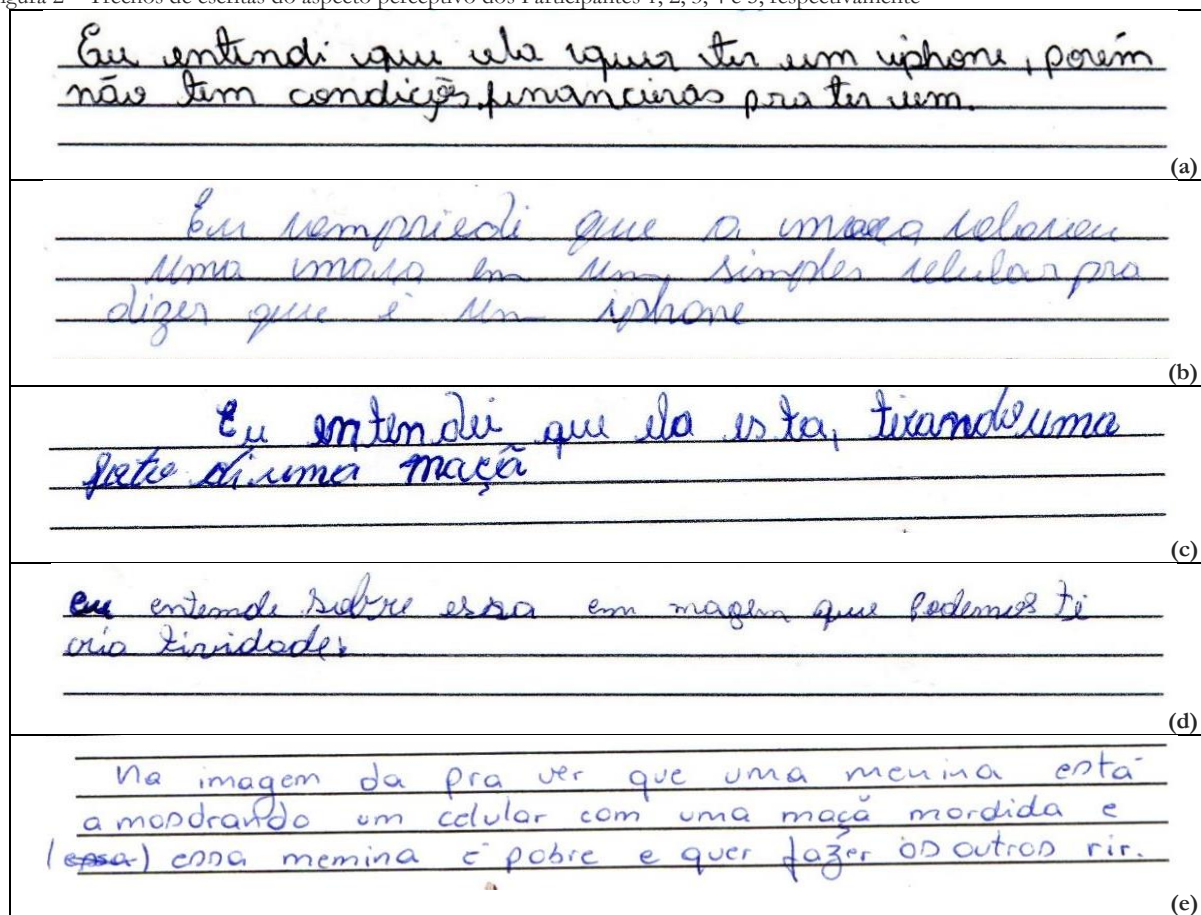 Figura 2 – Trechos de escritas do aspecto perceptivo dos Participantes 1, 2, 3, 4 e 5, respectivamente
Eu entindi que ela quer ter um iphone, porém
não tem condições finanncieras pra ter um.
(a)
Eu compriedi que a moça colocou
uma maça em um simples celular pra
dizer que é um iphone
(b)
Eu entendei que ela es ta, tirando uma
foto di uma maçã
(c)
eu entende sobre essa em magem que podemos te
cria tividade.
(d)
Na imagem da pra ver que uma menina está
amosdrando um celular com uma maçã mordida e
(essa) essa memina é pobre e quer fazer os outros rir.
(e)